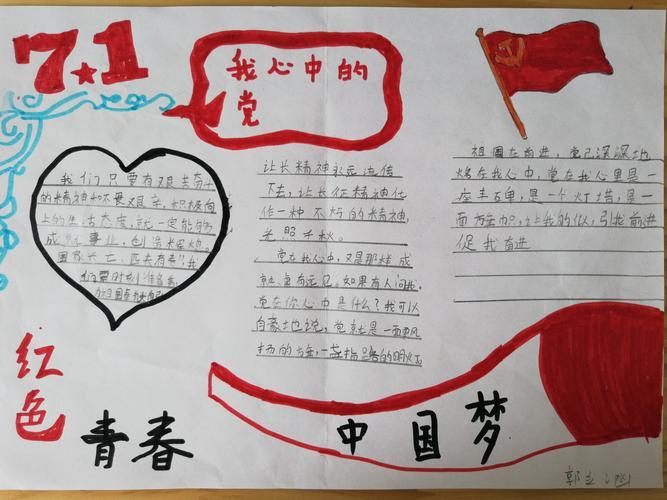 7.1
我心中的
党
我们只要有艰苦奋斗
的精神和不畏艰辛、积极向
上的生活态度，就一定能够
成就事业，创造
国家兴亡，匹夫有责，我
们要时刻准备着，
为祖国
让长征精神永远流传
下去，让长征精神化
作一种不朽的精神，
光照千秋。
党在我心中，又是那样成
就
党在你心中是什么？我可以
自豪地说，党就是一面飘
扬的旗，一盏指路的明灯
祖国在前进，党已深深地
烙在我心中，党在我心里是一
座丰碑，是一个灯塔，是一
面旗帜，让我的
促我奋进
红色
青春
中国梦
郭